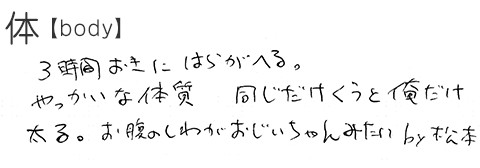 体【body】
3時間おきにはらがへる。
やっかいな体質 同じだけくうと俺だけ
太る。お腹のしわがおじいちゃんみたい by 松本